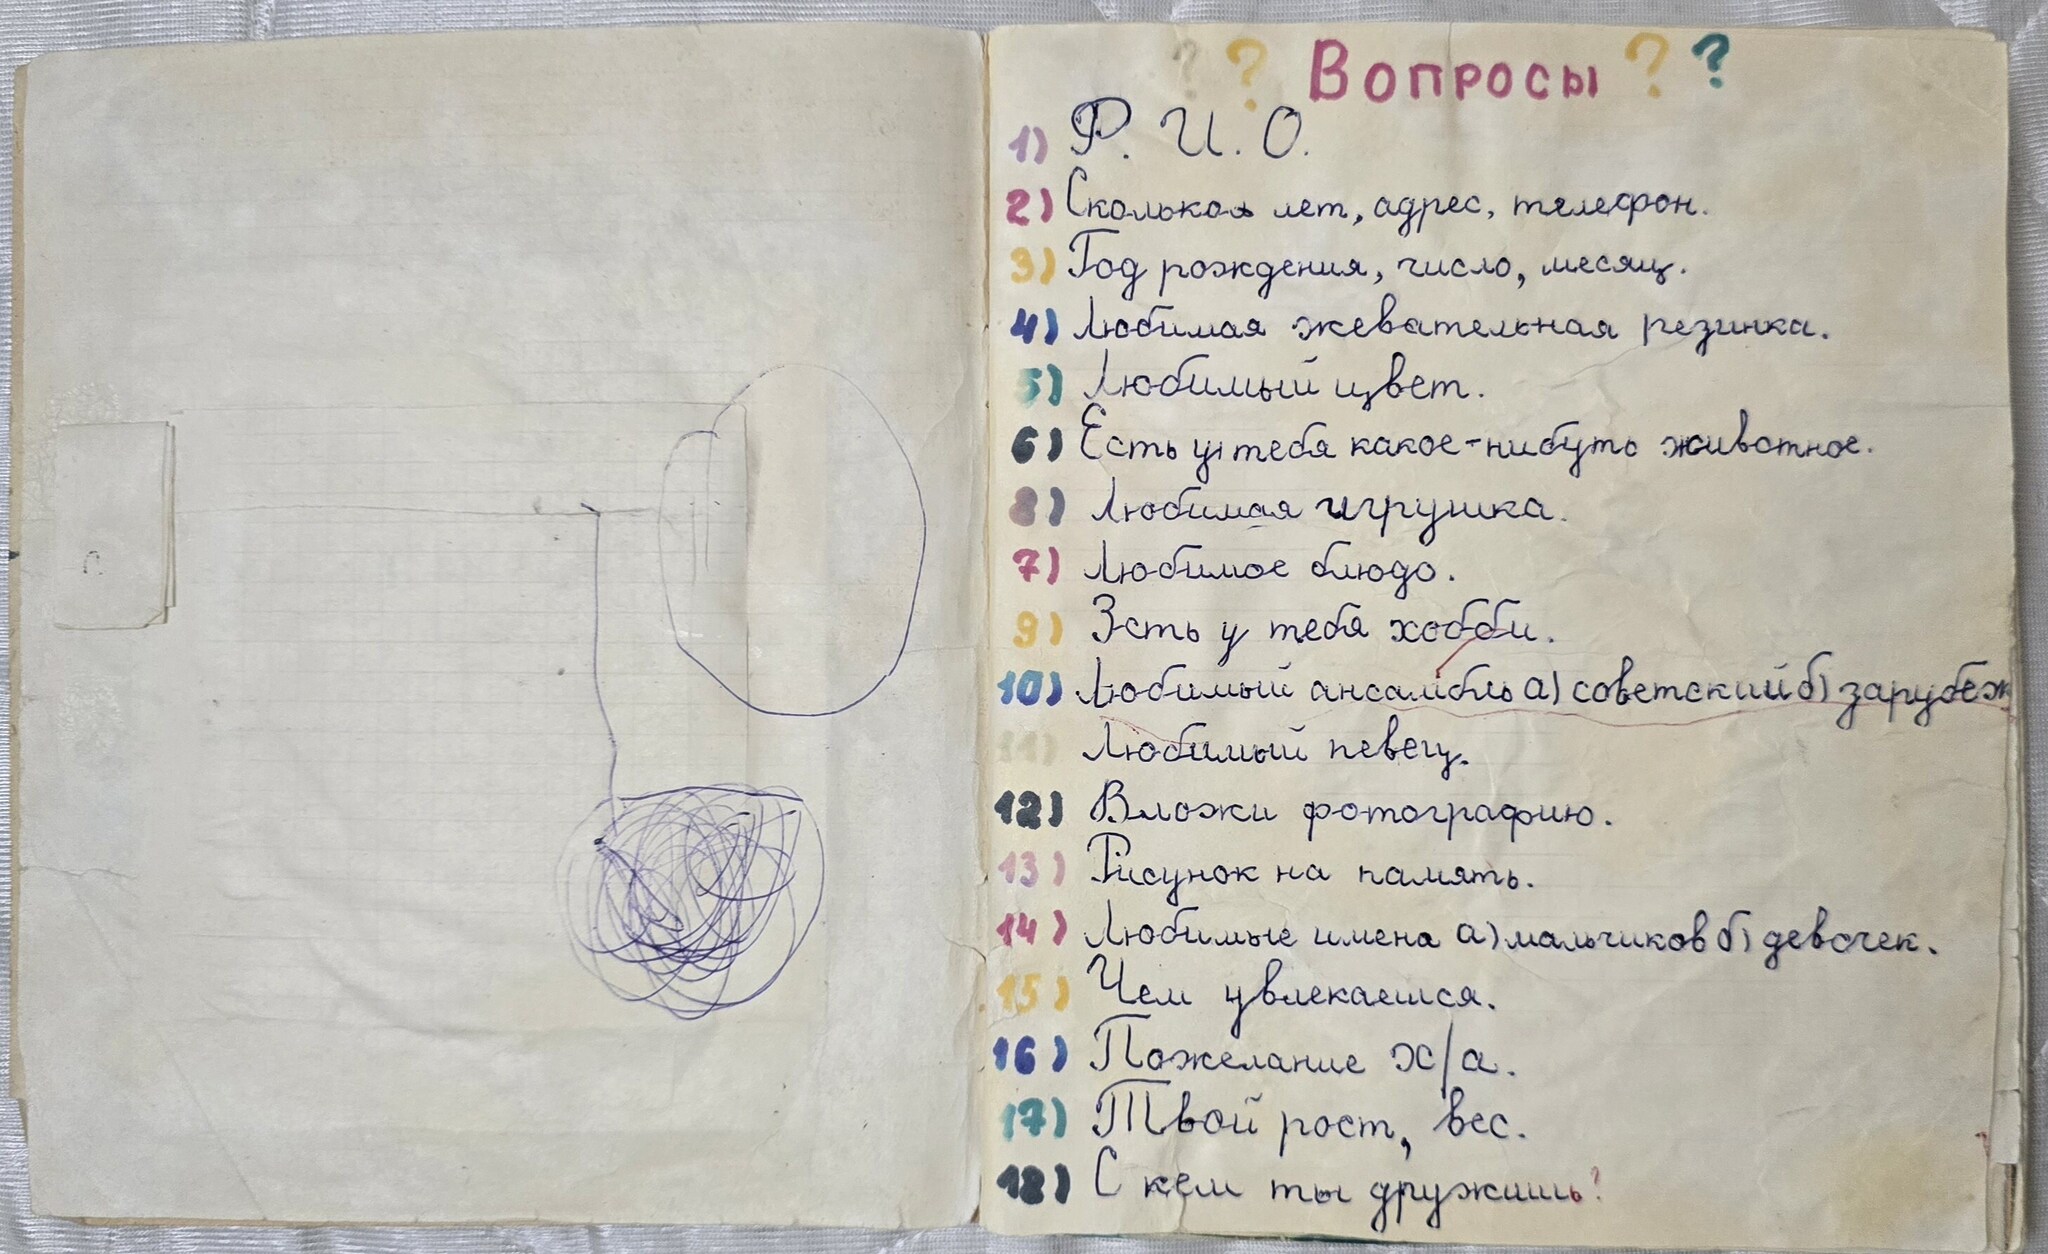 ? ? Вопросы ? ?
1) Ф. И. О.
2) Сколько лет, адрес, телефон.
3) Год рождения, число, месяц.
4) Любимая жевательная резинка.
5) Любимый цвет.
6) Есть у тебя какое-нибуть животное.
8) Любимая игрушка.
7) Любимое блюдо.
9) Эсть у тебя хобби.
10) Любимый ансамбль а) советский б) зарубеж
11) Любимый певец.
12) Вложи фотографию.
13) Рисунок на память.
14) Любимые имена а) мальчиков б) девочек.
15) Чем увлекаешся.
16) Пожелание х/а.
17) Твой рост, вес.
18) С кем ты дружишь?